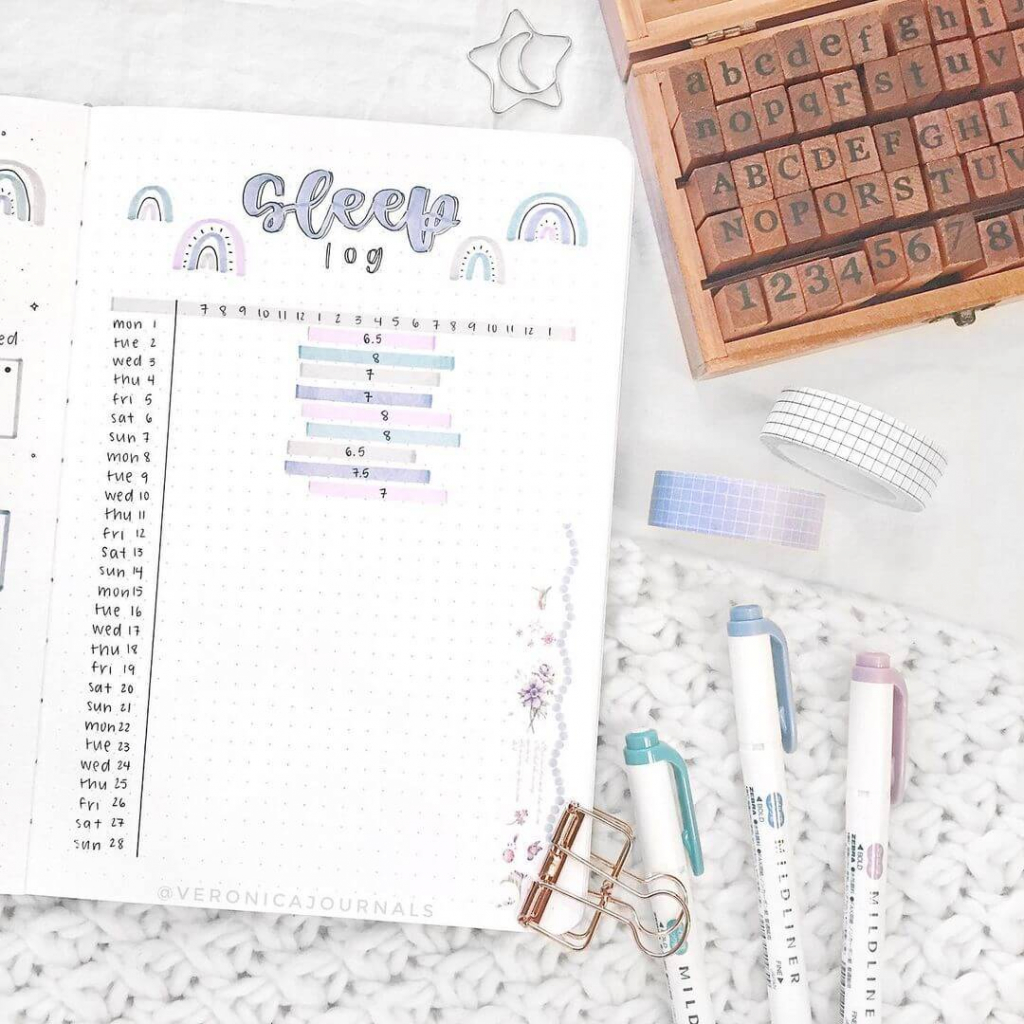 sleep
log
7 8 9 10 11 12 1 2 3 4 5 6 7 8 9 10 11 12 1
mon 1
tue 2 6.5
wed 3 8
thu 4 7
fri 5 7
sat 6 8
sun 7 8
mon 8 6.5
tue 9 7.5
wed 10 7
thu 11
fri 12
sat 13
sun 14
mon 15
tue 16
wed 17
thu 18
fri 19
sat 20
sun 21
mon 22
tue 23
wed 24
thu 25
fri 26
sat 27
sun 28
@VERONICAJOURNALS
ed
a b c d e f g h i
n o p q r s t u v
A B C D E F G H I
N O P Q R S T U V
1 2 3 4 5 6 7 8
MILD
BOLD
ZEBRA
MILDLINER
FINE
BOLD
ZEBRA
MILDLINE